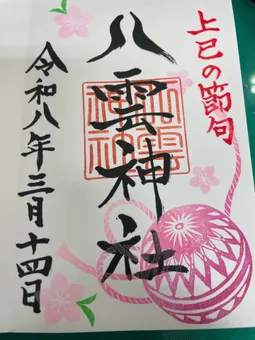 上巳の節句
八雲神社
令和八年三月十四日